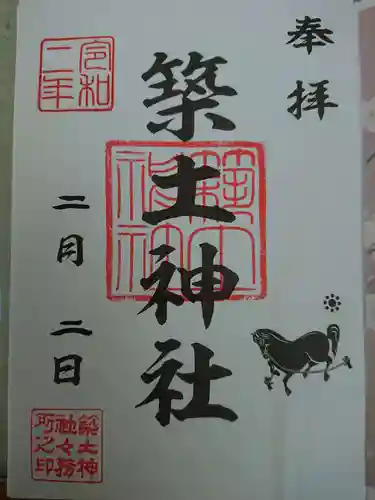 奉拝
築土神社
令和二年
二月二日
築土神
社々務
所之印